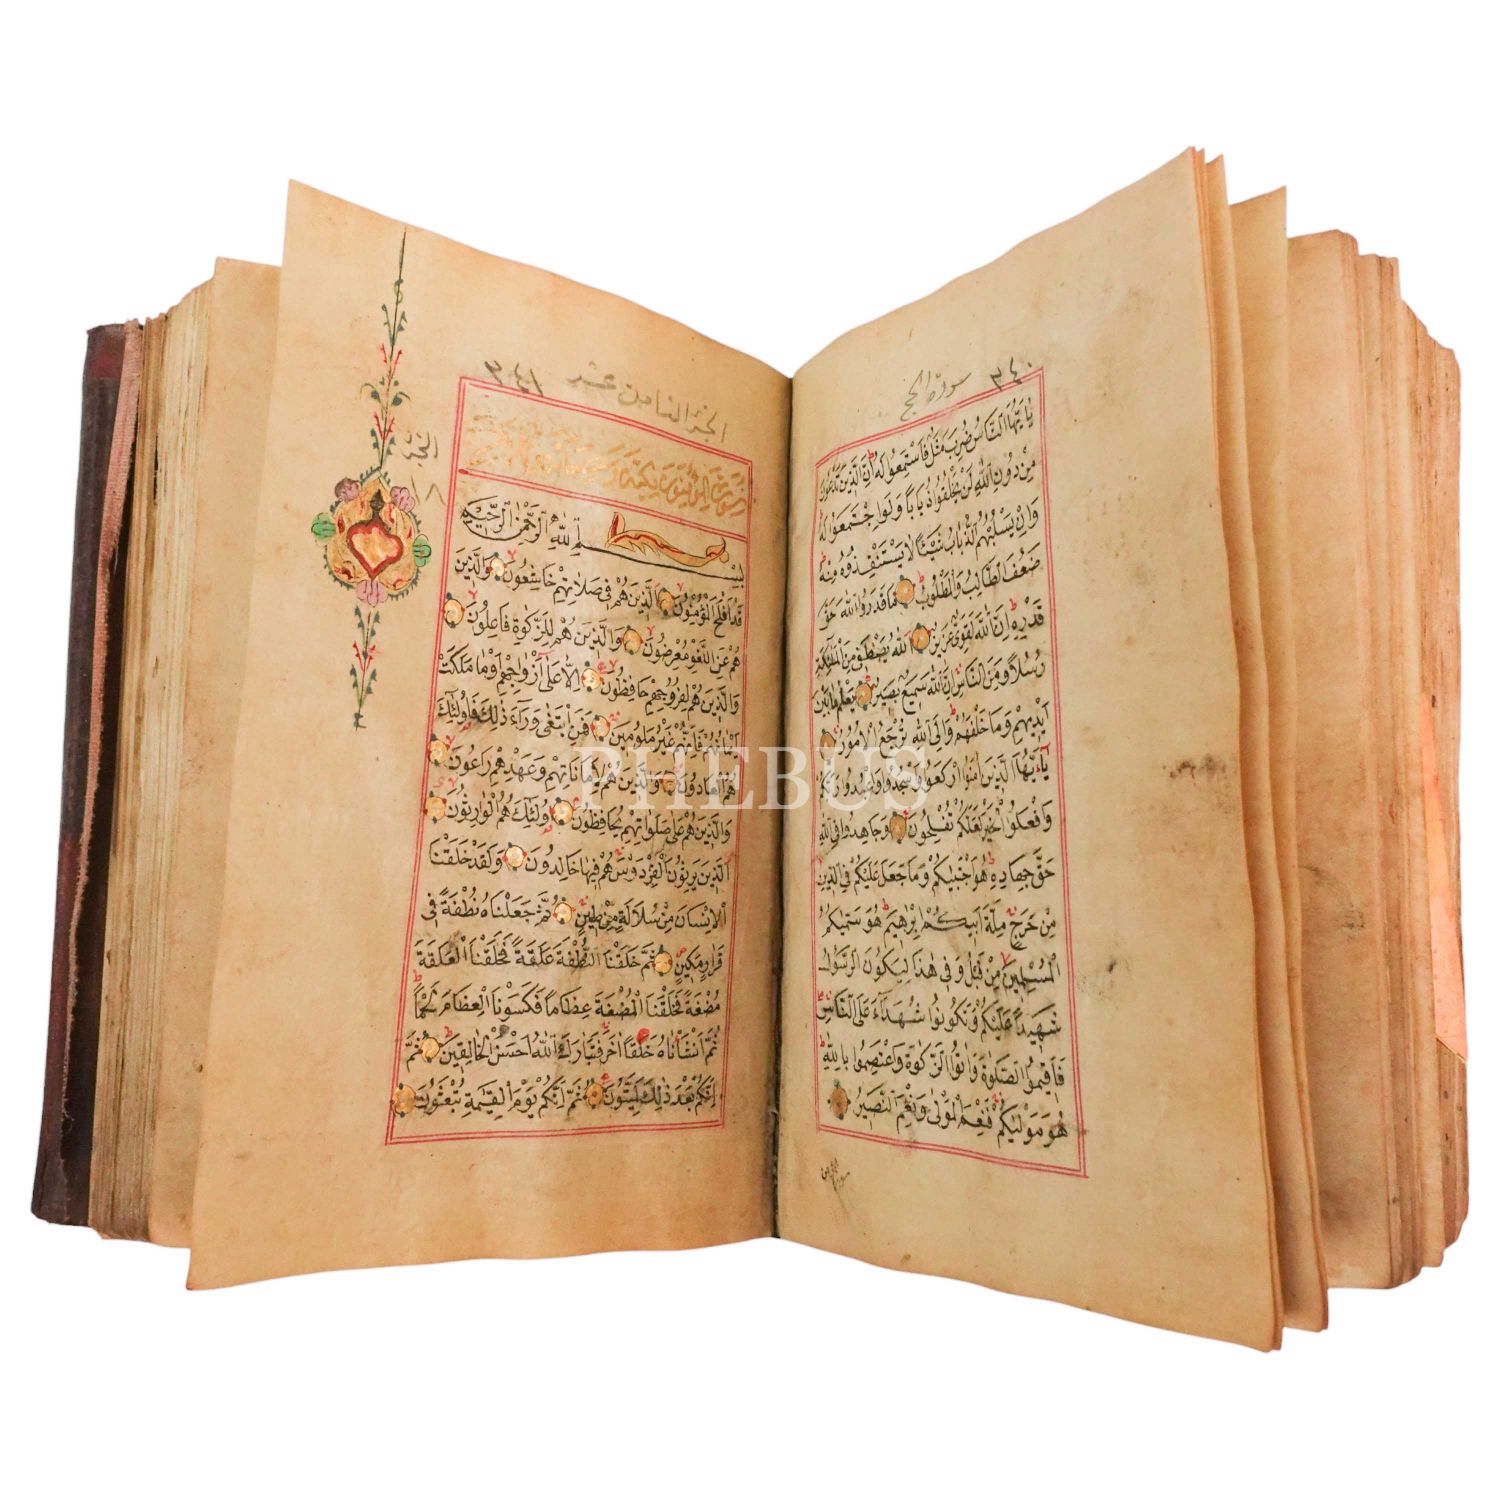 ٣٤٠
سورة الحج
يا يها الناس ضرب مثل فاستمعوا له ان الذين تدعون
من دون الله لن يخلقوا ذبابا ولو اجتمعوا له
وان يسلبهم الذباب شيئا لا يستنقذوه منه
ضعف الطالب والمطلوب ما قدروا الله حق
قدره ان الله لقوى عزيز الله يصطفى من الملئكة
رسلا ومن الناس ان الله سميع بصير يعلم ما بين
ايديهم وما خلفهم والى الله ترجع الامور
ياءيها الذين امنوا اركعوا واسجدوا واعبدوا ربكم
وافعلوا الخير لعلكم تفلحون وجاهدوا فى الله
حق جهاده هو اجتبيكم وما جعل عليكم فى الدين
من حرج ملة ابيكم ابرهيم هو سميكم
المسلمين من قبل وفى هذا ليكون الرسول
شهيدا عليكم وتكونوا شهداء على الناس
فاقيموا الصلوة واتوا الزكوة واعتصموا بالله
هو موليكم فنعم المولى ونعم النصير
الجزء الثامن عشر
٣٤١
الجزء
١٨
بسم الله الرحمن الرحيم
قد افلح المؤمنون الذين هم فى صلاتهم خاشعون والذين
هم عن اللغو معرضون والذين هم للزكوة فاعلون
والذين هم لفروجهم حافظون الا على ازواجهم او ما ملكت
ايمانهم فانهم غير ملومين فمن ابتغى وراء ذلك فاولئك
هم العادون والذين هم لاماناتهم وعهدهم راعون
والذين هم على صلواتهم يحافظون اولئك هم الوارثون
الذين يرثون الفردوس هم فيها خالدون ولقد خلقنا
الانسان من سلالة من طين ثم جعلناه نطفة فى
قرار مكين ثم خلقنا النطفة علقة فخلقنا العلقة
مضغة فخلقنا المضغة عظاما فكسونا العظام لحما
ثم انشاناه خلقا اخر فتبارك الله احسن الخالقين ثم
انكم بعد ذلك لميتون ثم انكم يوم القيمة تبعثون
PHEBUS